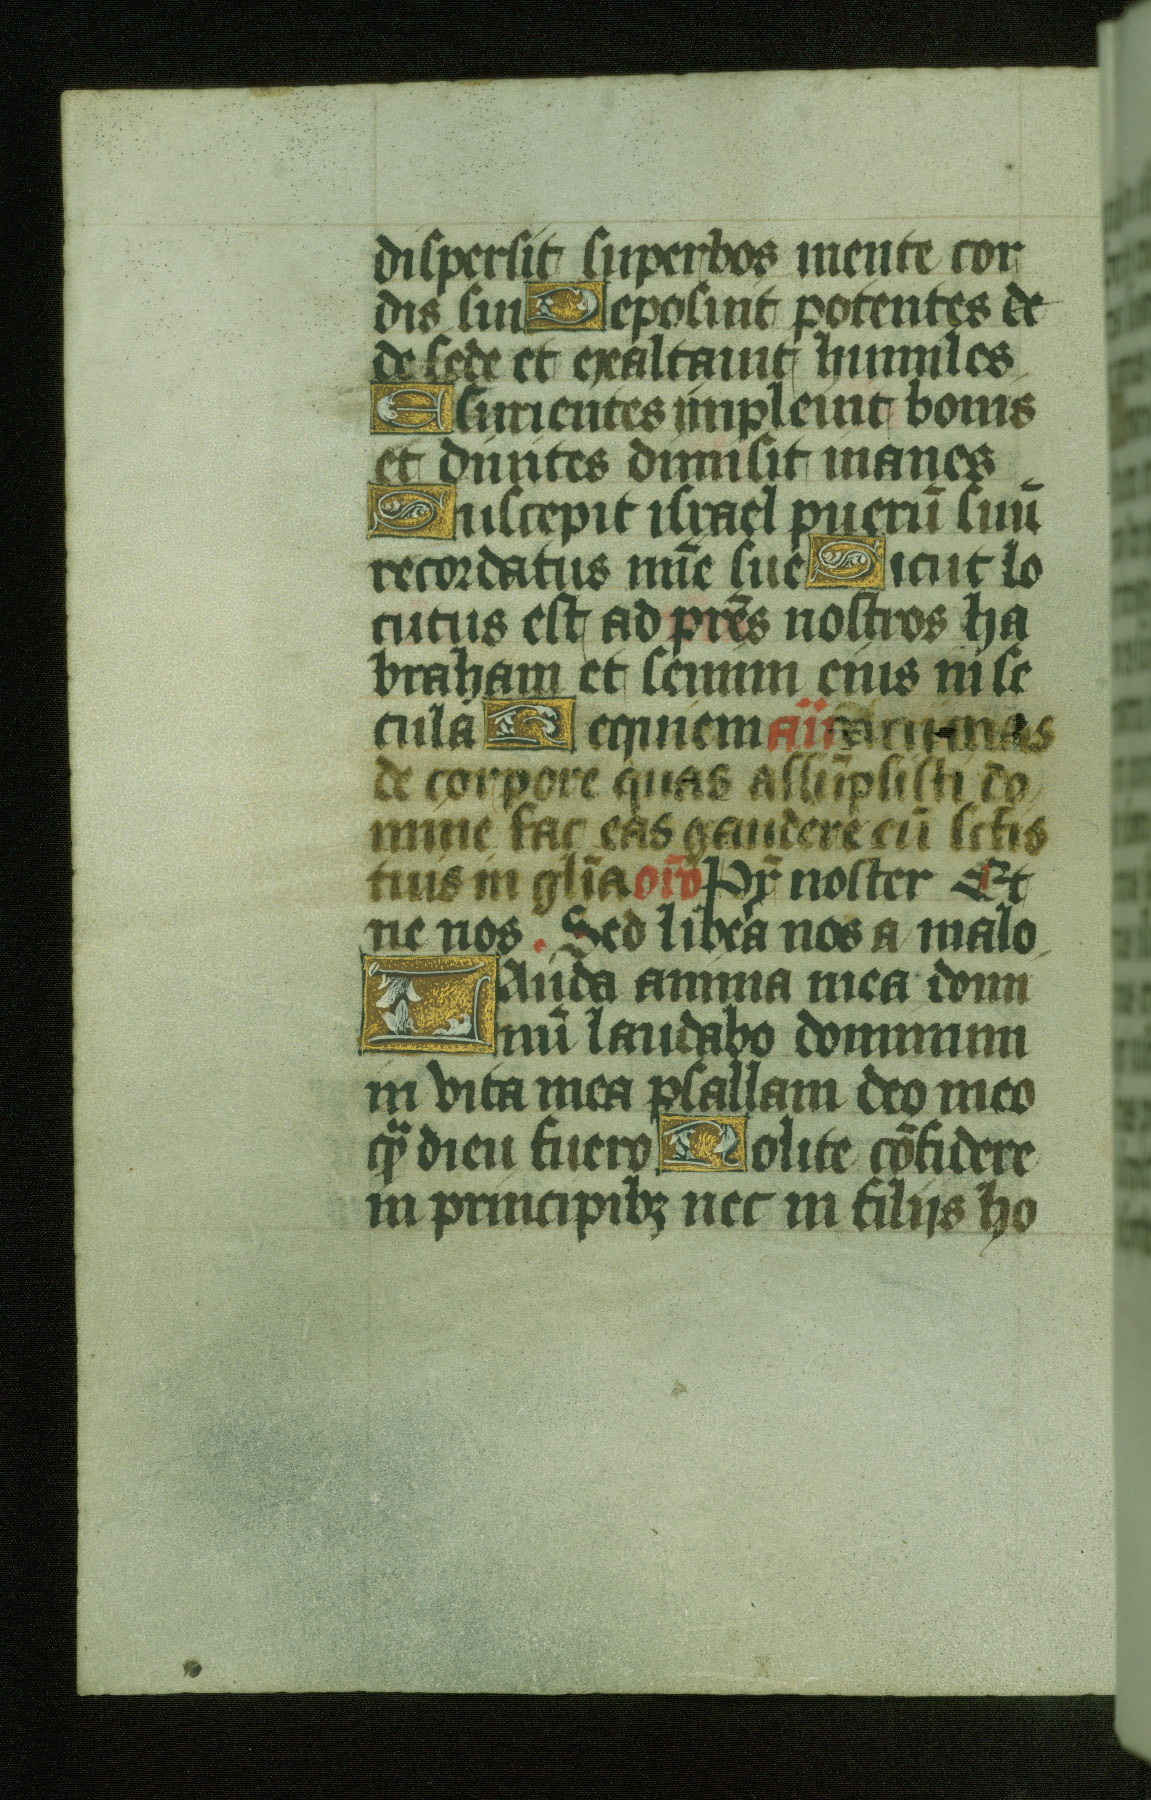 dispersit superbos mente cor
dis sui Deposuit potentes de
de sede et exaltauit humiles
Esurientes impleuit bonis
et diuites dimisit inanes
Suscepit israel puerū suū
recordatus mīe sue Sicut lo
cutus est ad prēs nostros ha
braham et semini eius in se
cula Requiem añ animas
de corpore quas assūpsisti do
mine fac eas gaudere cū sctis
tuis in glīa orō Pr̄ noster Et
ne nos . Sed libea nos a malo
Lauda anima mea domi
nū laudabo dominum
in vita mea psallam deo meo
qͫdieu fuero Nolite cōfidere
in principibꝫ nec in filijs ho